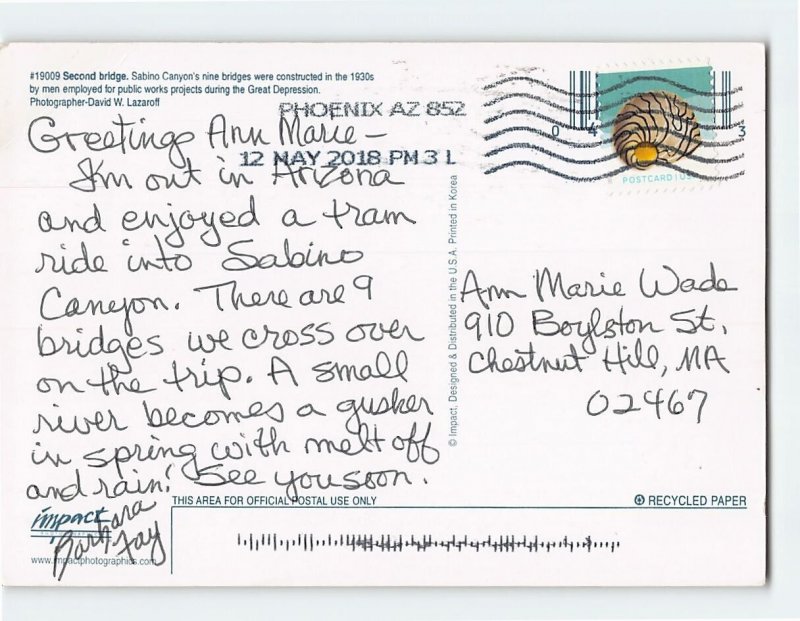 #19009 Second bridge. Sabino Canyon's nine bridges were constructed in the 1930s
by men employed for public works projects during the Great Depression.
Photographer-David W. Lazaroff
PHOENIX AZ 852
12 MAY 2018 PM 3 L
0 4 3
POSTCARD | US
Greetings Ann Marie -
I'm out in Arizona
and enjoyed a tram
ride into Sabino
Canyon. There are 9
bridges we cross over
on the trip. A small
river becomes a gusher
in spring with melt off
and rain! See you soon.
Barbara
Fay
© Impact, Designed & Distributed in the U.S.A. Printed in Korea
Ann Marie Wade
910 Boylston St,
Chestnut Hill, MA
02467
THIS AREA FOR OFFICIAL POSTAL USE ONLY
RECYCLED PAPER
impact
www.impactphotographics.com